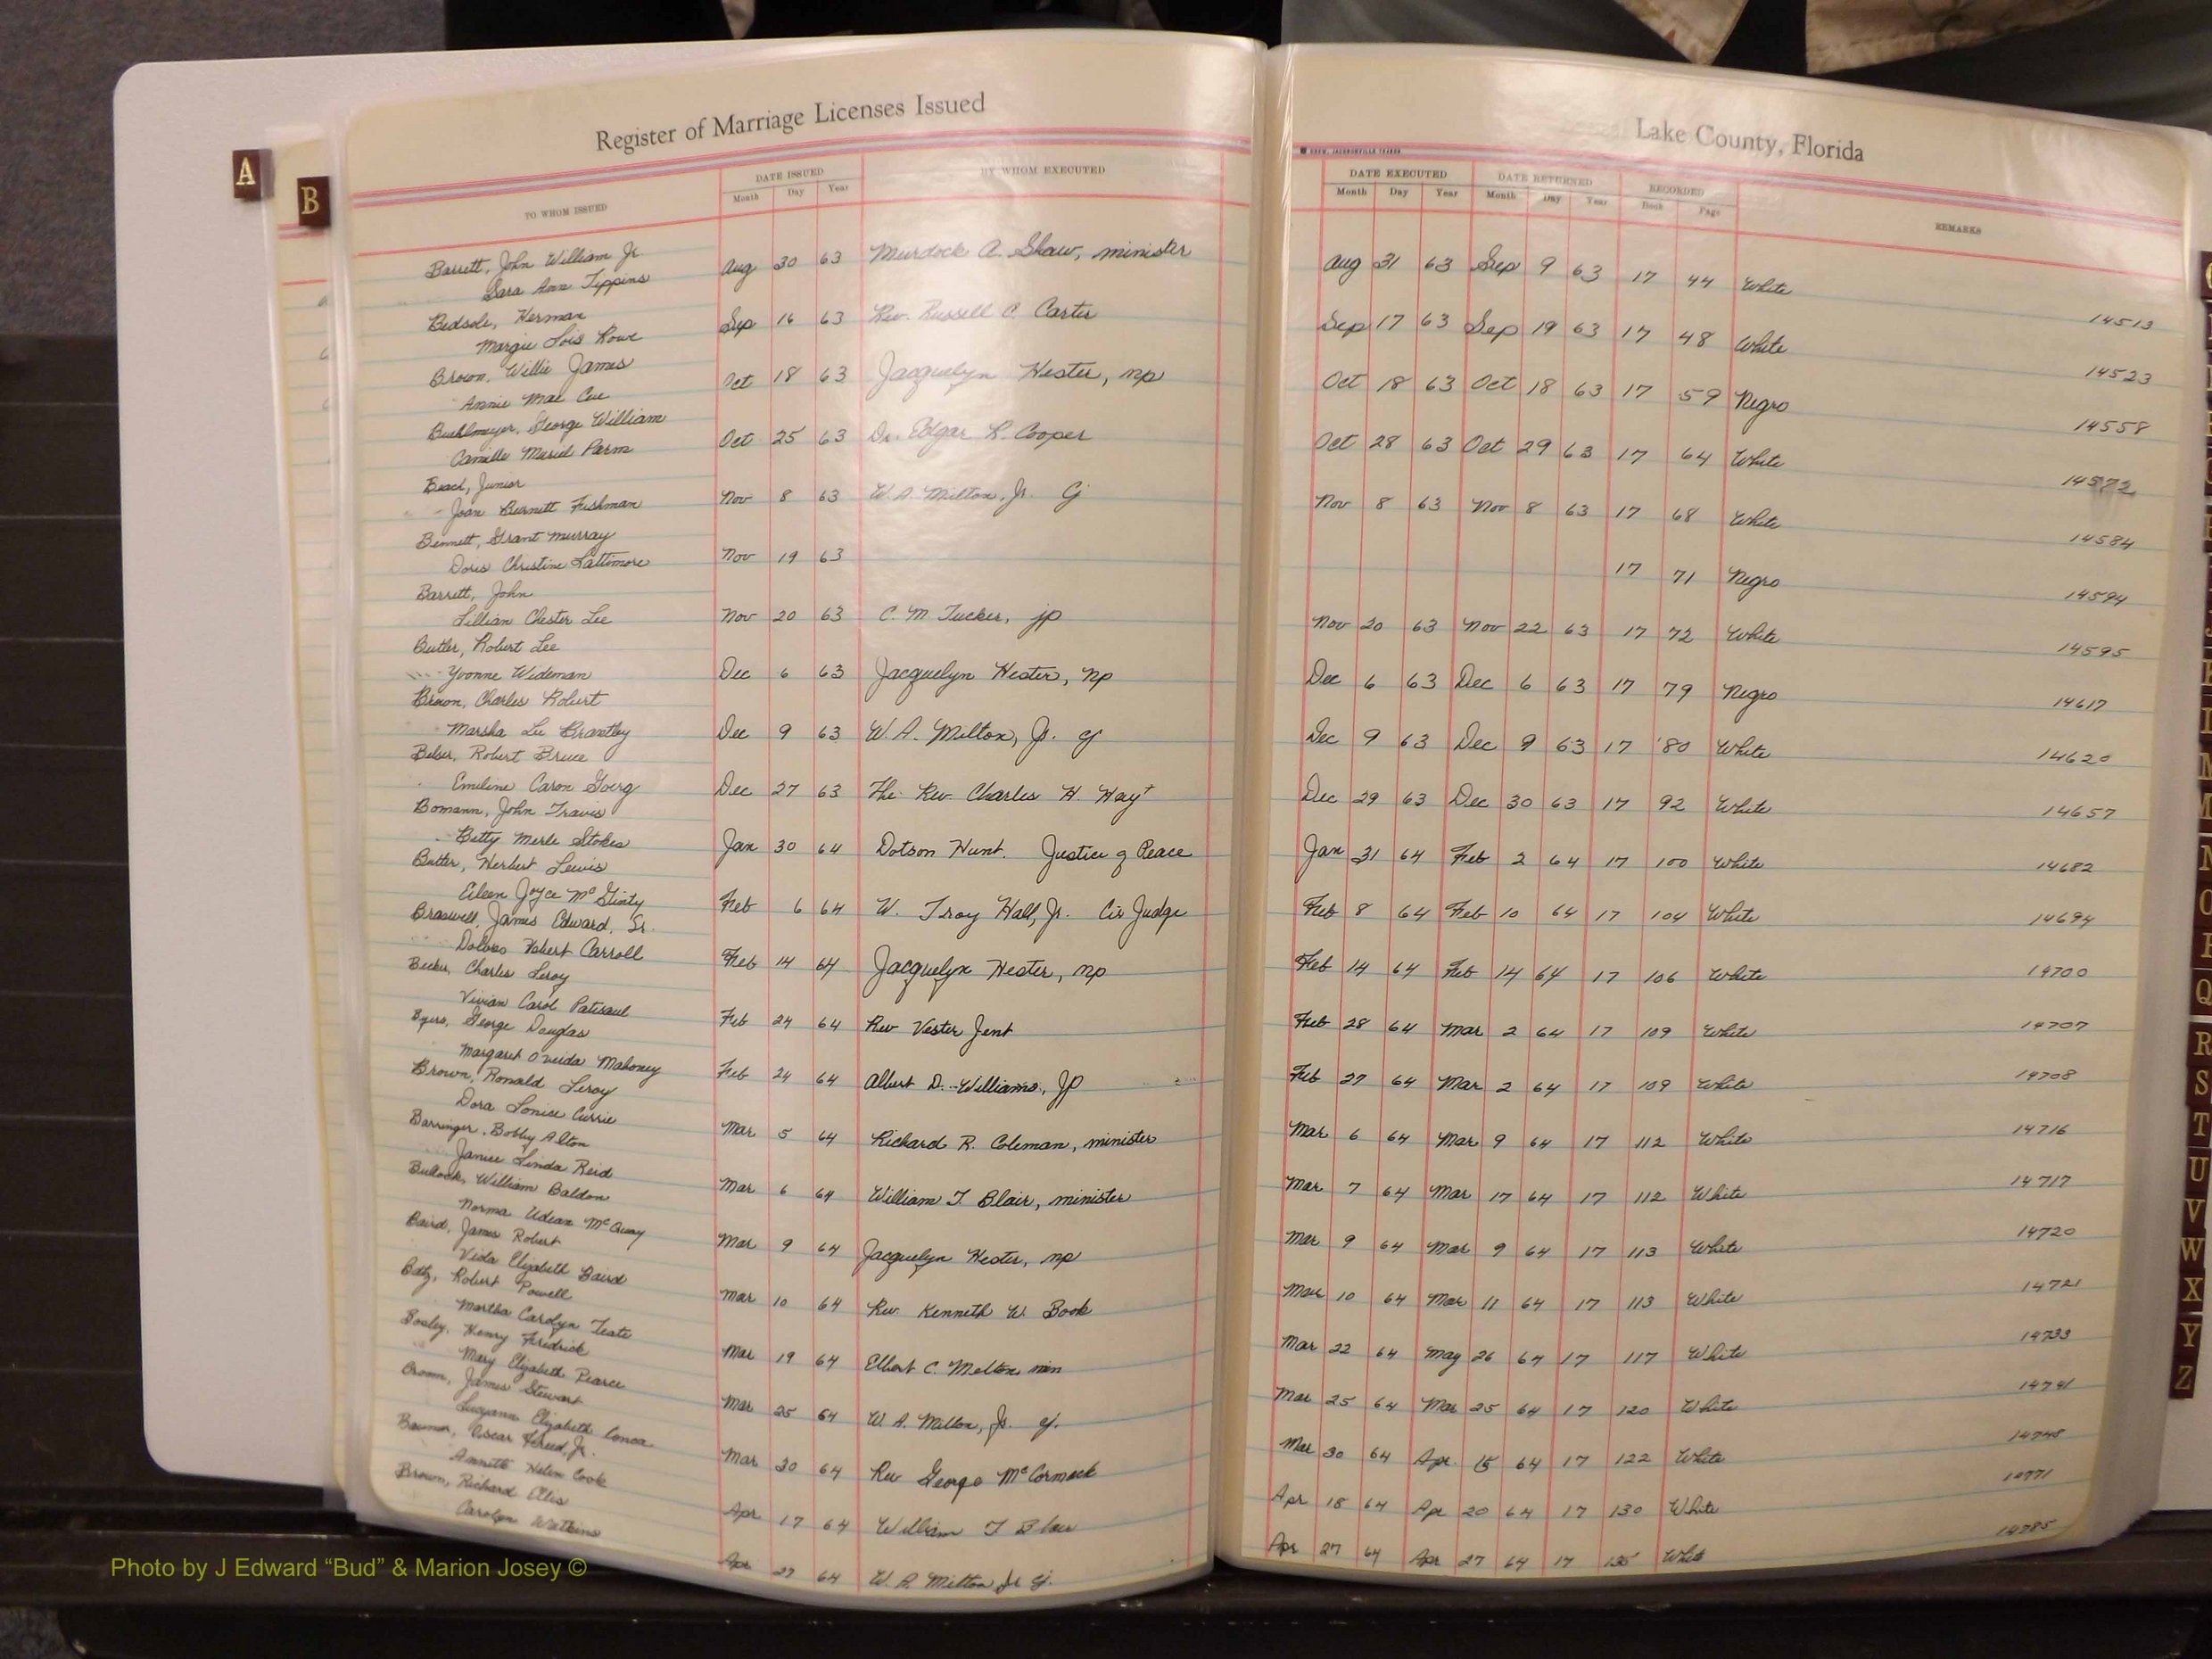 Register of Marriage Licenses Issued
Lake County, Florida
A
B
TO WHOM ISSUED
DATE ISSUED
Month Day Year
BY WHOM EXECUTED
DATE EXECUTED
Month Day Year
DATE RETURNED
Month Day Year
RECORDED
Book Page
REMARKS
Barrett, John William Jr
Sara Ann Tippins
Aug 30 63 Murdock A. Shaw, minister Aug 31 63 Sep 9 63 17 44 White 14513
Bedsole, Herman
Margie Lois Rowe
Sep 16 63 Rev. Russell C. Carter Sep 17 63 Sep 19 63 17 48 White 14523
Brown, Willie James
Annie Mae Cue
Oct 18 63 Jacquelyn Hester, np Oct 18 63 Oct 18 63 17 59 Negro 14558
Buehlmeyer, George William
Camille Muriel Parm
Oct 25 63 Dr. Edgar R. Cooper Oct 28 63 Oct 29 63 17 64 White 14572
Beach, Junior
Joan Burnett Fishman
Nov 8 63 W. A. Milton, Jr. Cj Nov 8 63 Nov 8 63 17 68 White 14584
Bennett, Grant Murray
Doris Christine Lattimore
Nov 19 63 17 71 Negro 14594
Barrett, John
Lillian Chester Lee
Nov 20 63 C. M. Tucker, jp Nov 20 63 Nov 22 63 17 72 White 14595
Butler, Robert Lee
Yvonne Wideman
Dec 6 63 Jacquelyn Hester, np Dec 6 63 Dec 6 63 17 79 Negro 14617
Brown, Charles Robert
Marsha Lee Brantley
Dec 9 63 W. A. Milton, Jr. cj Dec 9 63 Dec 9 63 17 80 White 14620
Belser, Robert Bruce
Emiline Caron Goerg
Dec 27 63 The Rev Charles H. Hay Dec 29 63 Dec 30 63 17 92 White 14657
Bomann, John Travis
Betty Merle Stokes
Jan 30 64 Dotson Hunt. Justice of Peace Jan 31 64 Feb 2 64 17 100 White 14682
Butler, Herbert Lewis
Eileen Joyce McGinty
Feb 6 64 W. Troy Hall, Jr. Cir Judge Feb 8 64 Feb 10 64 17 104 White 14694
Braswell, James Edward, Sr.
Dolores Hobert Carroll
Feb 14 64 Jacquelyn Hester, np Feb 14 64 Feb 14 64 17 106 White 14700
Becker, Charles Leroy
Vivian Carol Patisaul
Feb 24 64 Rev Vester Jent Feb 28 64 Mar 2 64 17 109 White 14707
Byers, George Douglas
Margaret Oneida Mahoney
Feb 24 64 Albert D. Williams, JP Feb 27 64 Mar 2 64 17 109 White 14708
Brown, Ronald Leroy
Dora Lonice Currie
Mar 5 64 Richard R. Coleman, minister Mar 6 64 Mar 9 64 17 112 White 14716
Barringer, Bobby Alton
Janice Linda Reid
Mar 6 64 William T. Blair, minister Mar 7 64 Mar 17 64 17 112 White 14717
Bullock, William Baldon
Norma Udean McQuay
Mar 9 64 Jacquelyn Hester, np Mar 9 64 Mar 9 64 17 113 White 14720
Baird, James Robert
Veda Elizabeth Baird
Mar 10 64 Rev. Kenneth W. Book Mar 10 64 Mar 11 64 17 113 White 14721
Robert Powell
Martha Carolyn Teate
Mar 19 64 Elbert C. Melton, min Mar 22 64 May 26 64 17 117 White 14733
Bosley, Henry Fredrick
Mary Elizabeth Pearce
Mar 25 64 W. A. Milton, Jr. cj. Mar 25 64 Mar 25 64 17 120 White 14741
James Stewart
Elizabeth
Mar 30 64 Rev George McCormack Mar 30 64 Apr. 15 64 17 122 White 14748
Oscar Jr.
Annette Helen Cook
Apr 17 64 William T Blair Apr 18 64 Apr 20 64 17 130 White 14771
Brown, Richard Ellis
Carolyn Watkins
Apr 27 64 W. A. Milton Jr cj. Apr 27 64 Apr 27 64 17 135 White 14785
R
S
T
U
V
W
X
Y
Z
Photo by J Edward “Bud” & Marion Josey ©